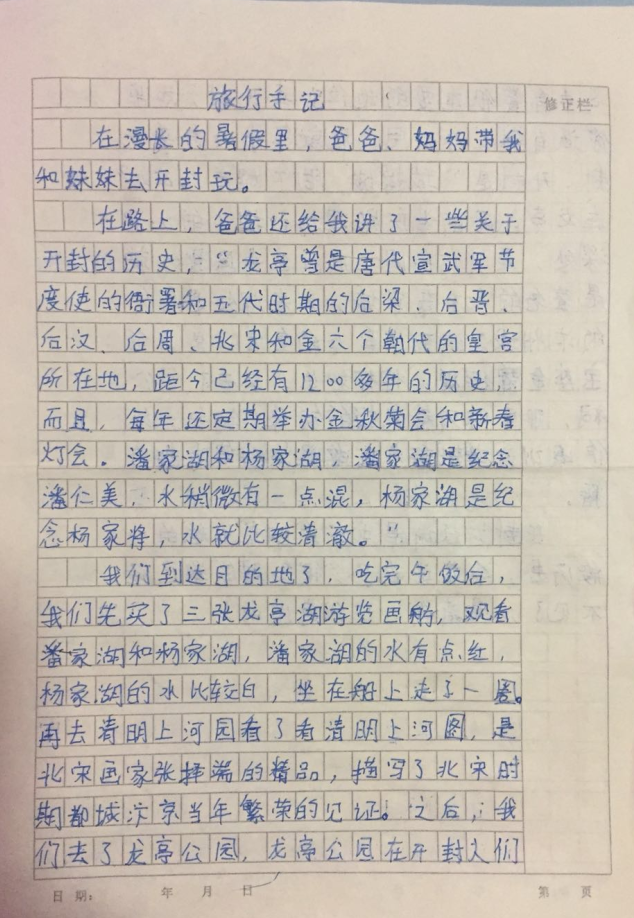 旅行手记
修正栏
在漫长的暑假里，爸爸、妈妈带我
和妹妹去开封玩。
在路上，爸爸还给我讲了一些关于
开封的历史，“龙亭曾是唐代宣武军节
度使的衙署和五代时期的后梁、后晋、
后汉、后周、北宋和金六个朝代的皇宫
所在地，距今已经有1200多年的历史
而且，每年还定期举办金秋菊会和新春
灯会．潘家湖和杨家湖，潘家湖是纪念
潘仁美，水稍微有一点混，杨家湖是纪
念杨家将，水就比较清澈。”
我们到达目的地了，吃完午饭后，
我们先买了三张龙亭湖游览画舫，观看
潘家湖和杨家湖，潘家湖的水有点红，
杨家湖的水比较白，坐在船上走了一圈。
再去清明上河园看了看清明上河图，是
北宋画家张择端的精品，描写了北宋时
期都城汴京当年繁荣的见证。之后，我
们去了龙亭公园，龙亭公园在开封人们
日期： 年 月 日 第 页